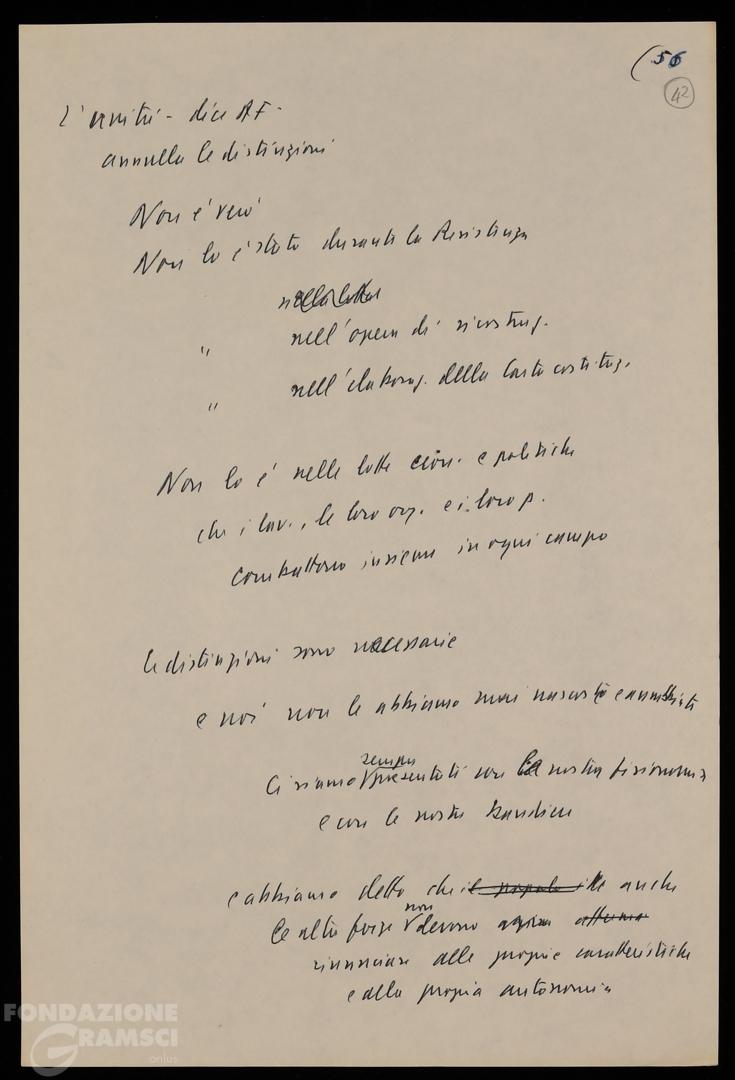 (56
42
L'unità - dice AF -
annulla le distinzioni
Non è vero
Non lo è stato durante la Resistenza
nella lotta
" nell'opera di ricostruz.
" nell'elaboraz. della Carta costituz.
Non lo è nelle lotte econ. e politiche
che i lav., le loro org. e i loro p.
combattono insieme in ogni campo
le distinzioni sono necessarie
e noi non le abbiamo mai nascoste e annullate
sempre
Ci siamo presentati con la nostra fisionomia
e con le nostre bandiere
e abbiamo detto che il popolo che anche
non
le altre forze devono
rinunciare alle proprie caratteristiche
e alla propria autonomia
FONDAZIONE
GRAMSCI
onlus